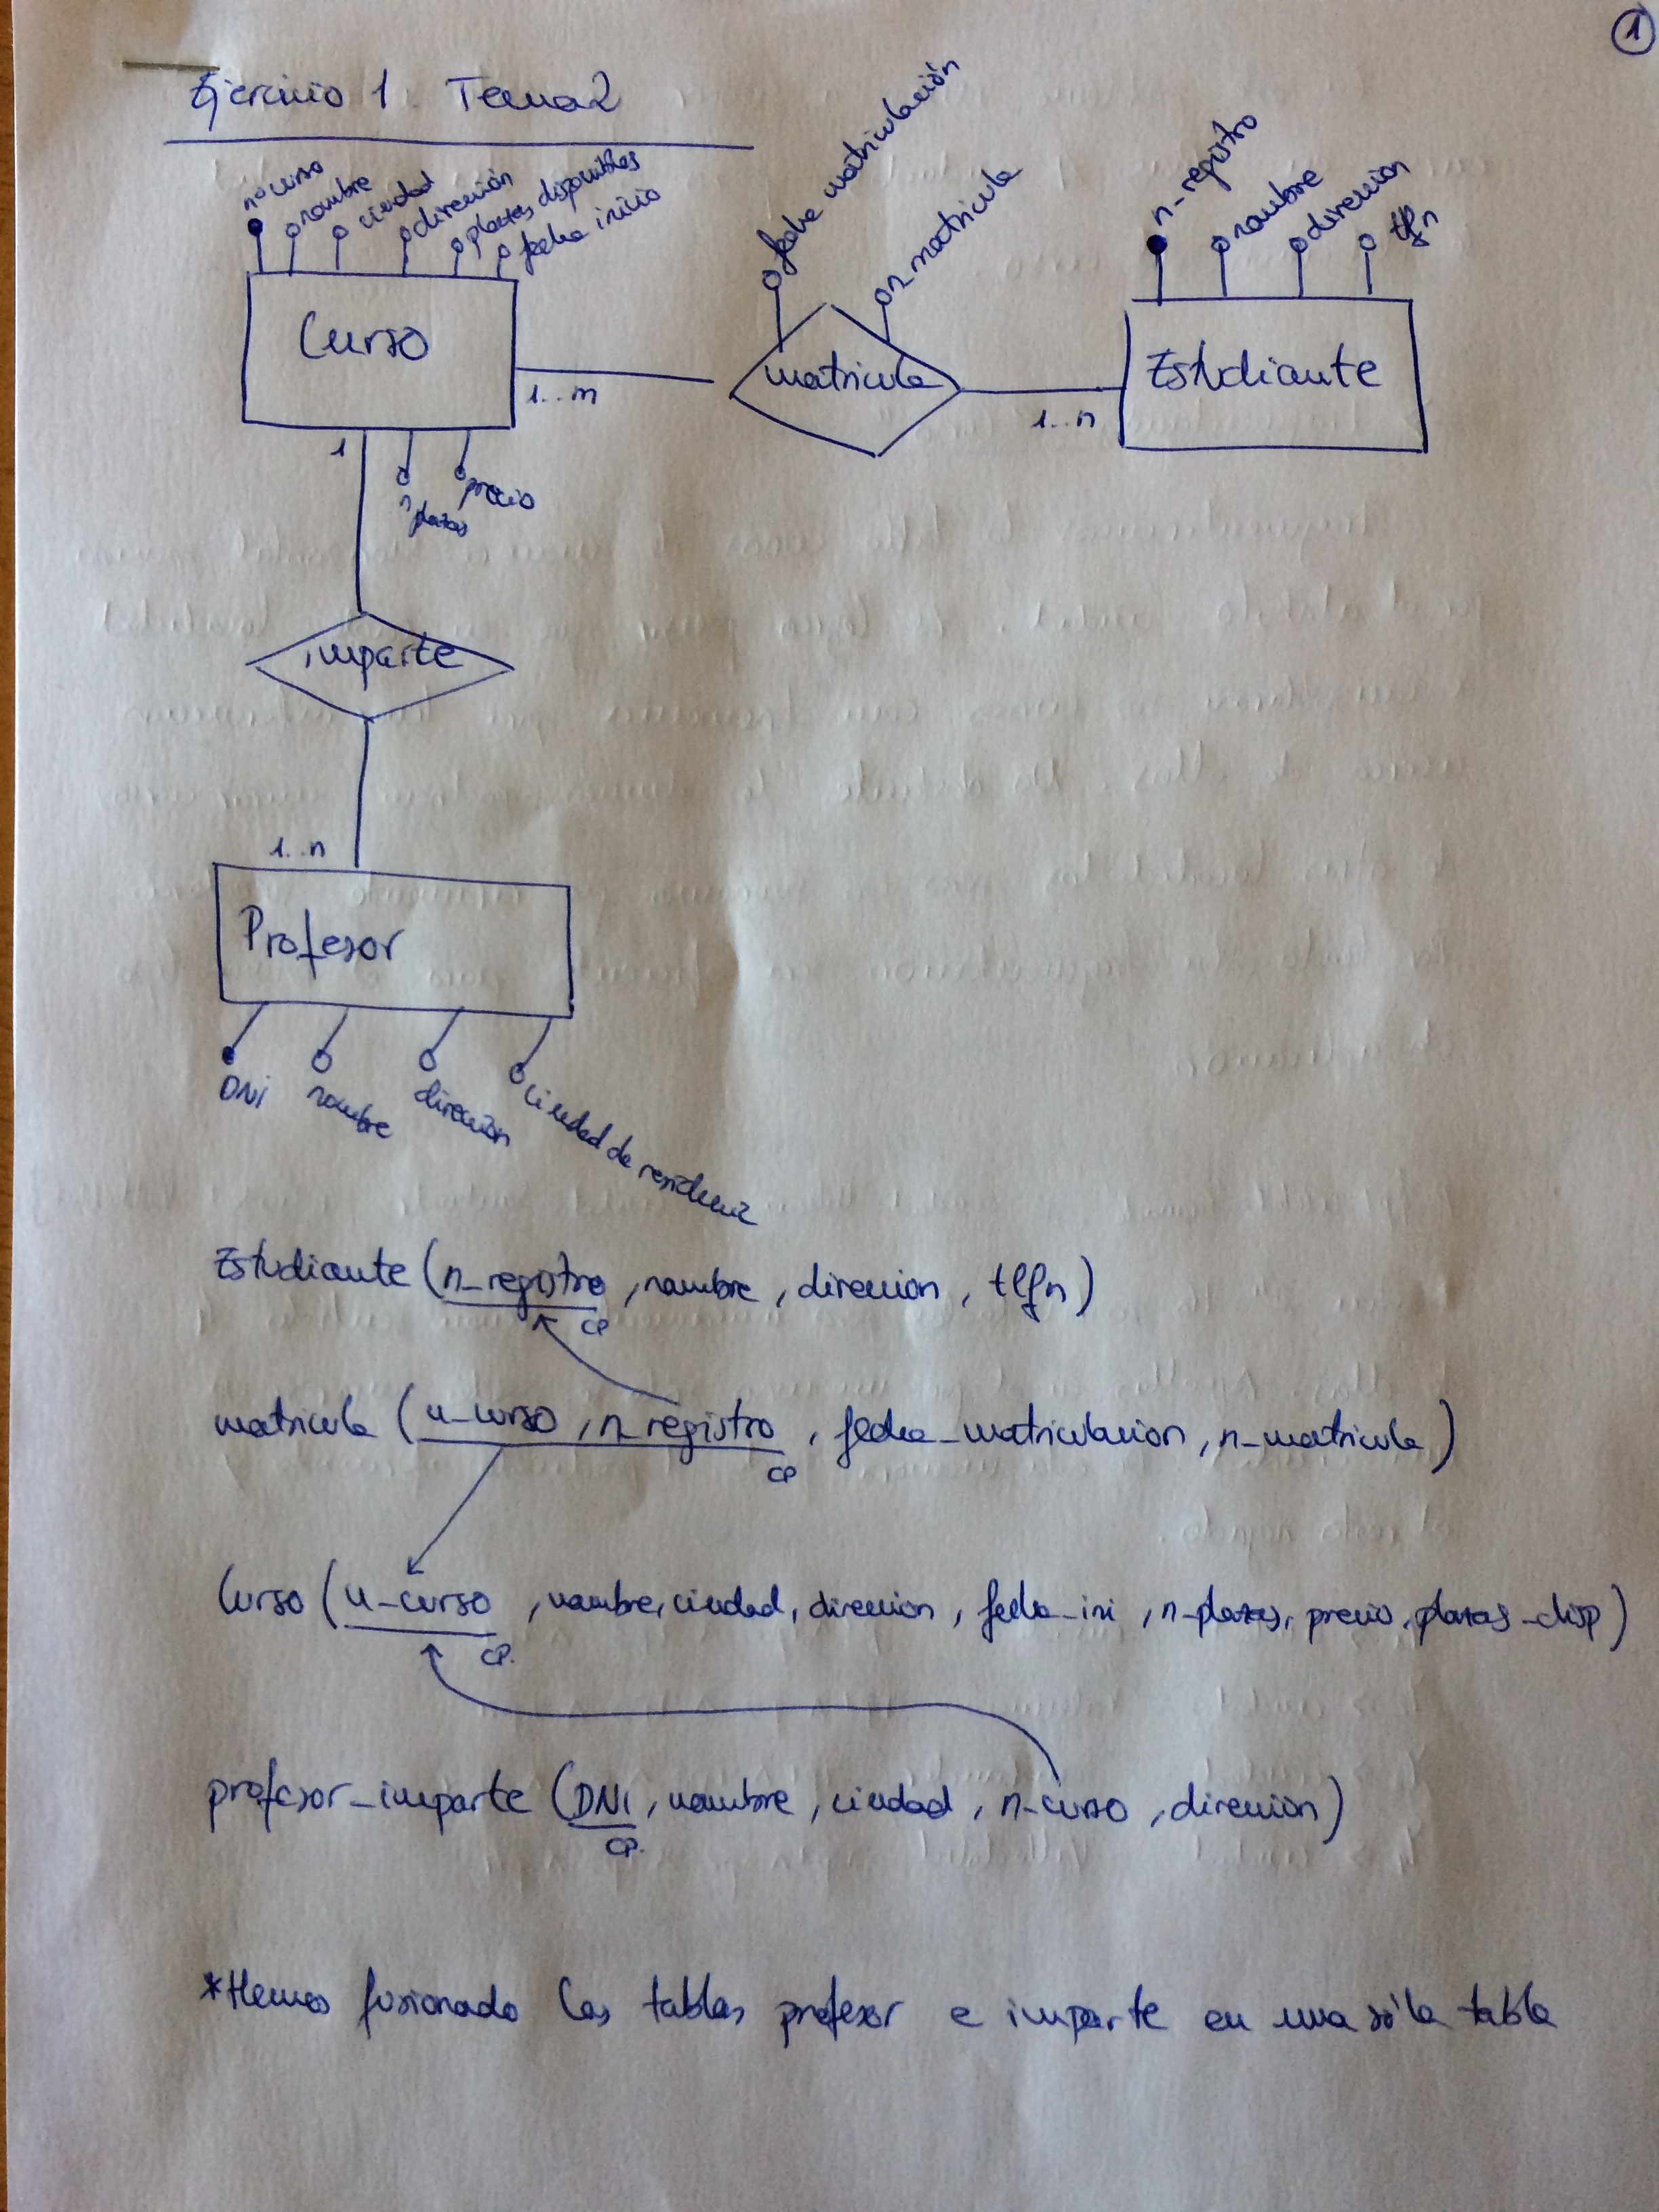 1
Ejercicio 1. Tema2
nº curso
nombre
ciudad
dirección
plazas disponibles
fecha inicio
fecha matriculación
n_matricula
n_registro
nombre
direccion
tlfn
Curso
matricula
Estudiante
1..m
1..n
1
n plazas
precio
imparte
1..n
Profesor
DNi
nombre
dirección
ciudad de residencia
Estudiante (n_registro, nombre, direccion, tlfn)
CP
matricula (n_curso, n_registro, fecha_matriculacion, n_matricula)
CP
Curso (n_curso, nombre, ciudad, direccion, fecha_ini, n_plazas, precio, plazas_disp)
CP.
profesor_imparte (DNi, nombre, ciudad, n_curso, direccion)
CP.
*Hemos fusionado las tablas profesor e imparte en una sóla tabla